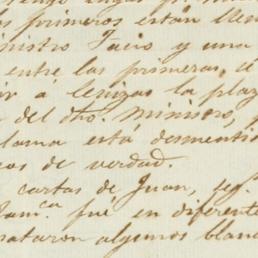 primeros están llen
nistro Tacio y una
entre las primeras, é
ir a lenzas la plaz
del dho. ministro,
lama está desmentio
os de verdad.
cartas de Juan, seg.
Jam.ca fué en diferente
ataron algunos blanc